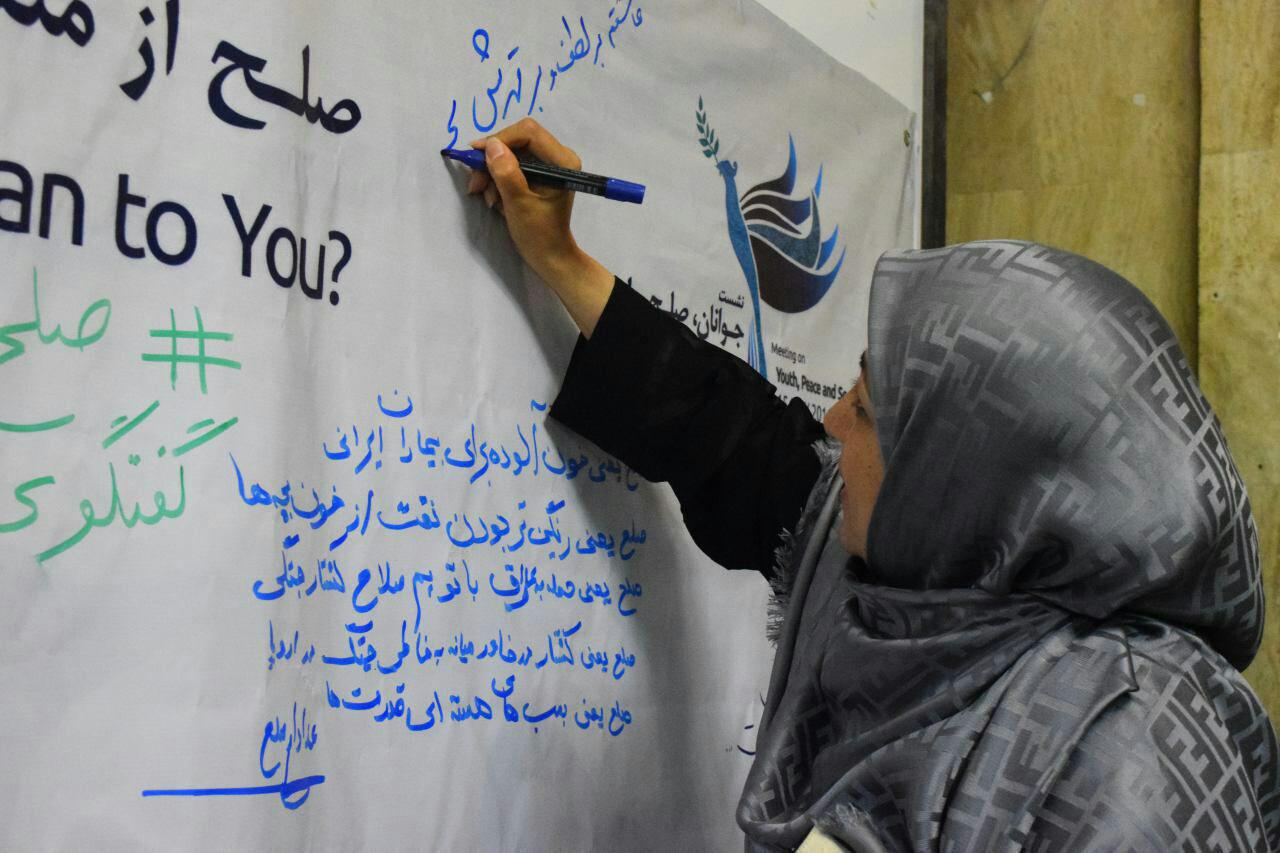 صلح از
an to You?
عاشقم بر لطف و بر قهرش
# صلح
گفتگوی
نشست
جوانان، صلح
Meeting on
Youth, Peace and Se
یعنی خون آلوده برای بیماران ایرانی
صلح یعنی رنگین تر بودن نفت از خون بچه ها
صلح یعنی حمله به عراق با توهم سلاح کشتار جنگی
صلح یعنی کشتار در خاورمیانه به خاطر جنگ در اروپا
صلح یعنی بمب های هسته ای قدرت ها
صلح